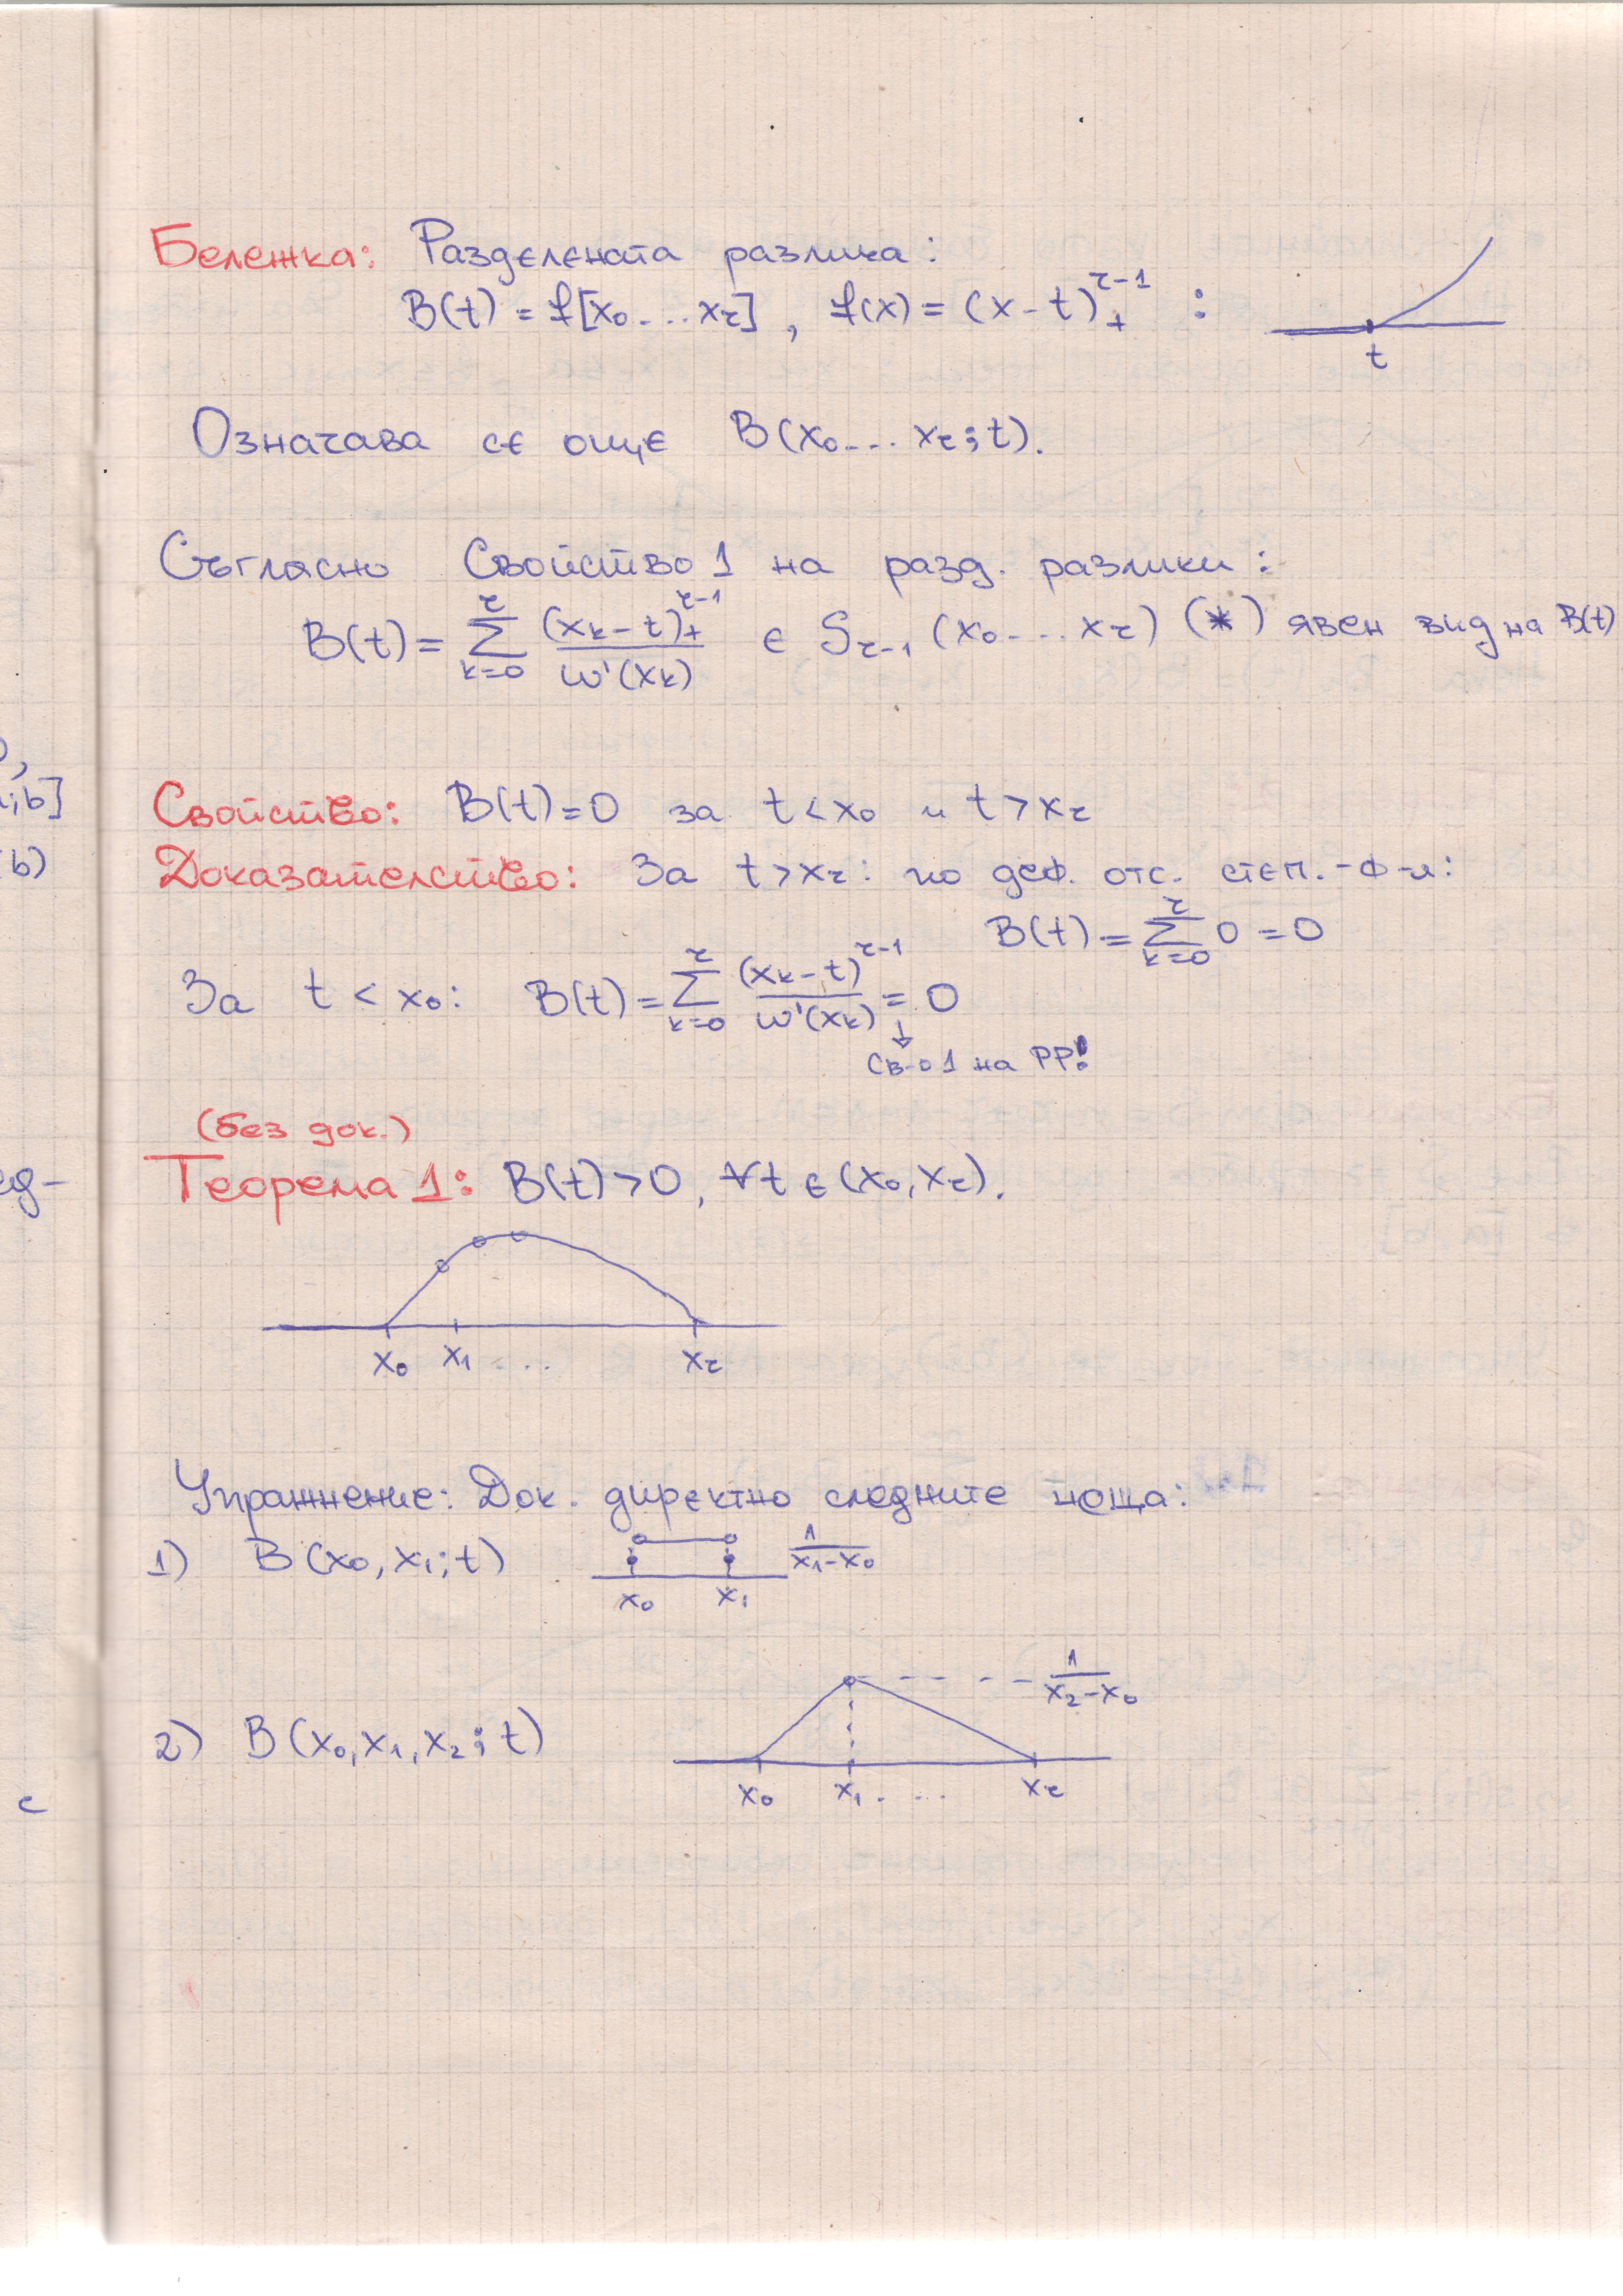 Бележка: Разделената разлика:
B(t) = f[x₀...xᵣ], f(x) = (x-t)₊^{r-1} :
t
Означава се още B(x₀...xᵣ; t).
Съгласно Свойство 1 на разд. разлики:
B(t) = \sum_{k=0}^{r} \frac{(x_k-t)_+^{r-1}}{ω'(x_k)} ∈ S_{r-1}(x₀...xᵣ) (*) явен вид на B(t)
;b]
b)
Свойство: B(t)=0 за t<x₀ и t>xᵣ
Доказателство: За t>xᵣ: по деф. отс. степ. ф-я:
B(t) = \sum_{k=0}^{r} 0 = 0
За t < x₀: B(t) = \sum_{k=0}^{r} \frac{(x_k-t)^{r-1}}{ω'(x_k)} = 0
↓
Св-о 1 на РР!
(без док.)
Теорема 1: B(t)>0, ∀t ∈ (x₀, xᵣ).
x₀ x₁ ... xᵣ
Упражнение: Док. директно следните неща:
1) B(x₀, x₁; t) \frac{1}{x₁-x₀}
x₀ x₁
\frac{1}{x₂-x₀}
2) B(x₀, x₁, x₂; t)
x₀ x₁ ... xᵣ
с